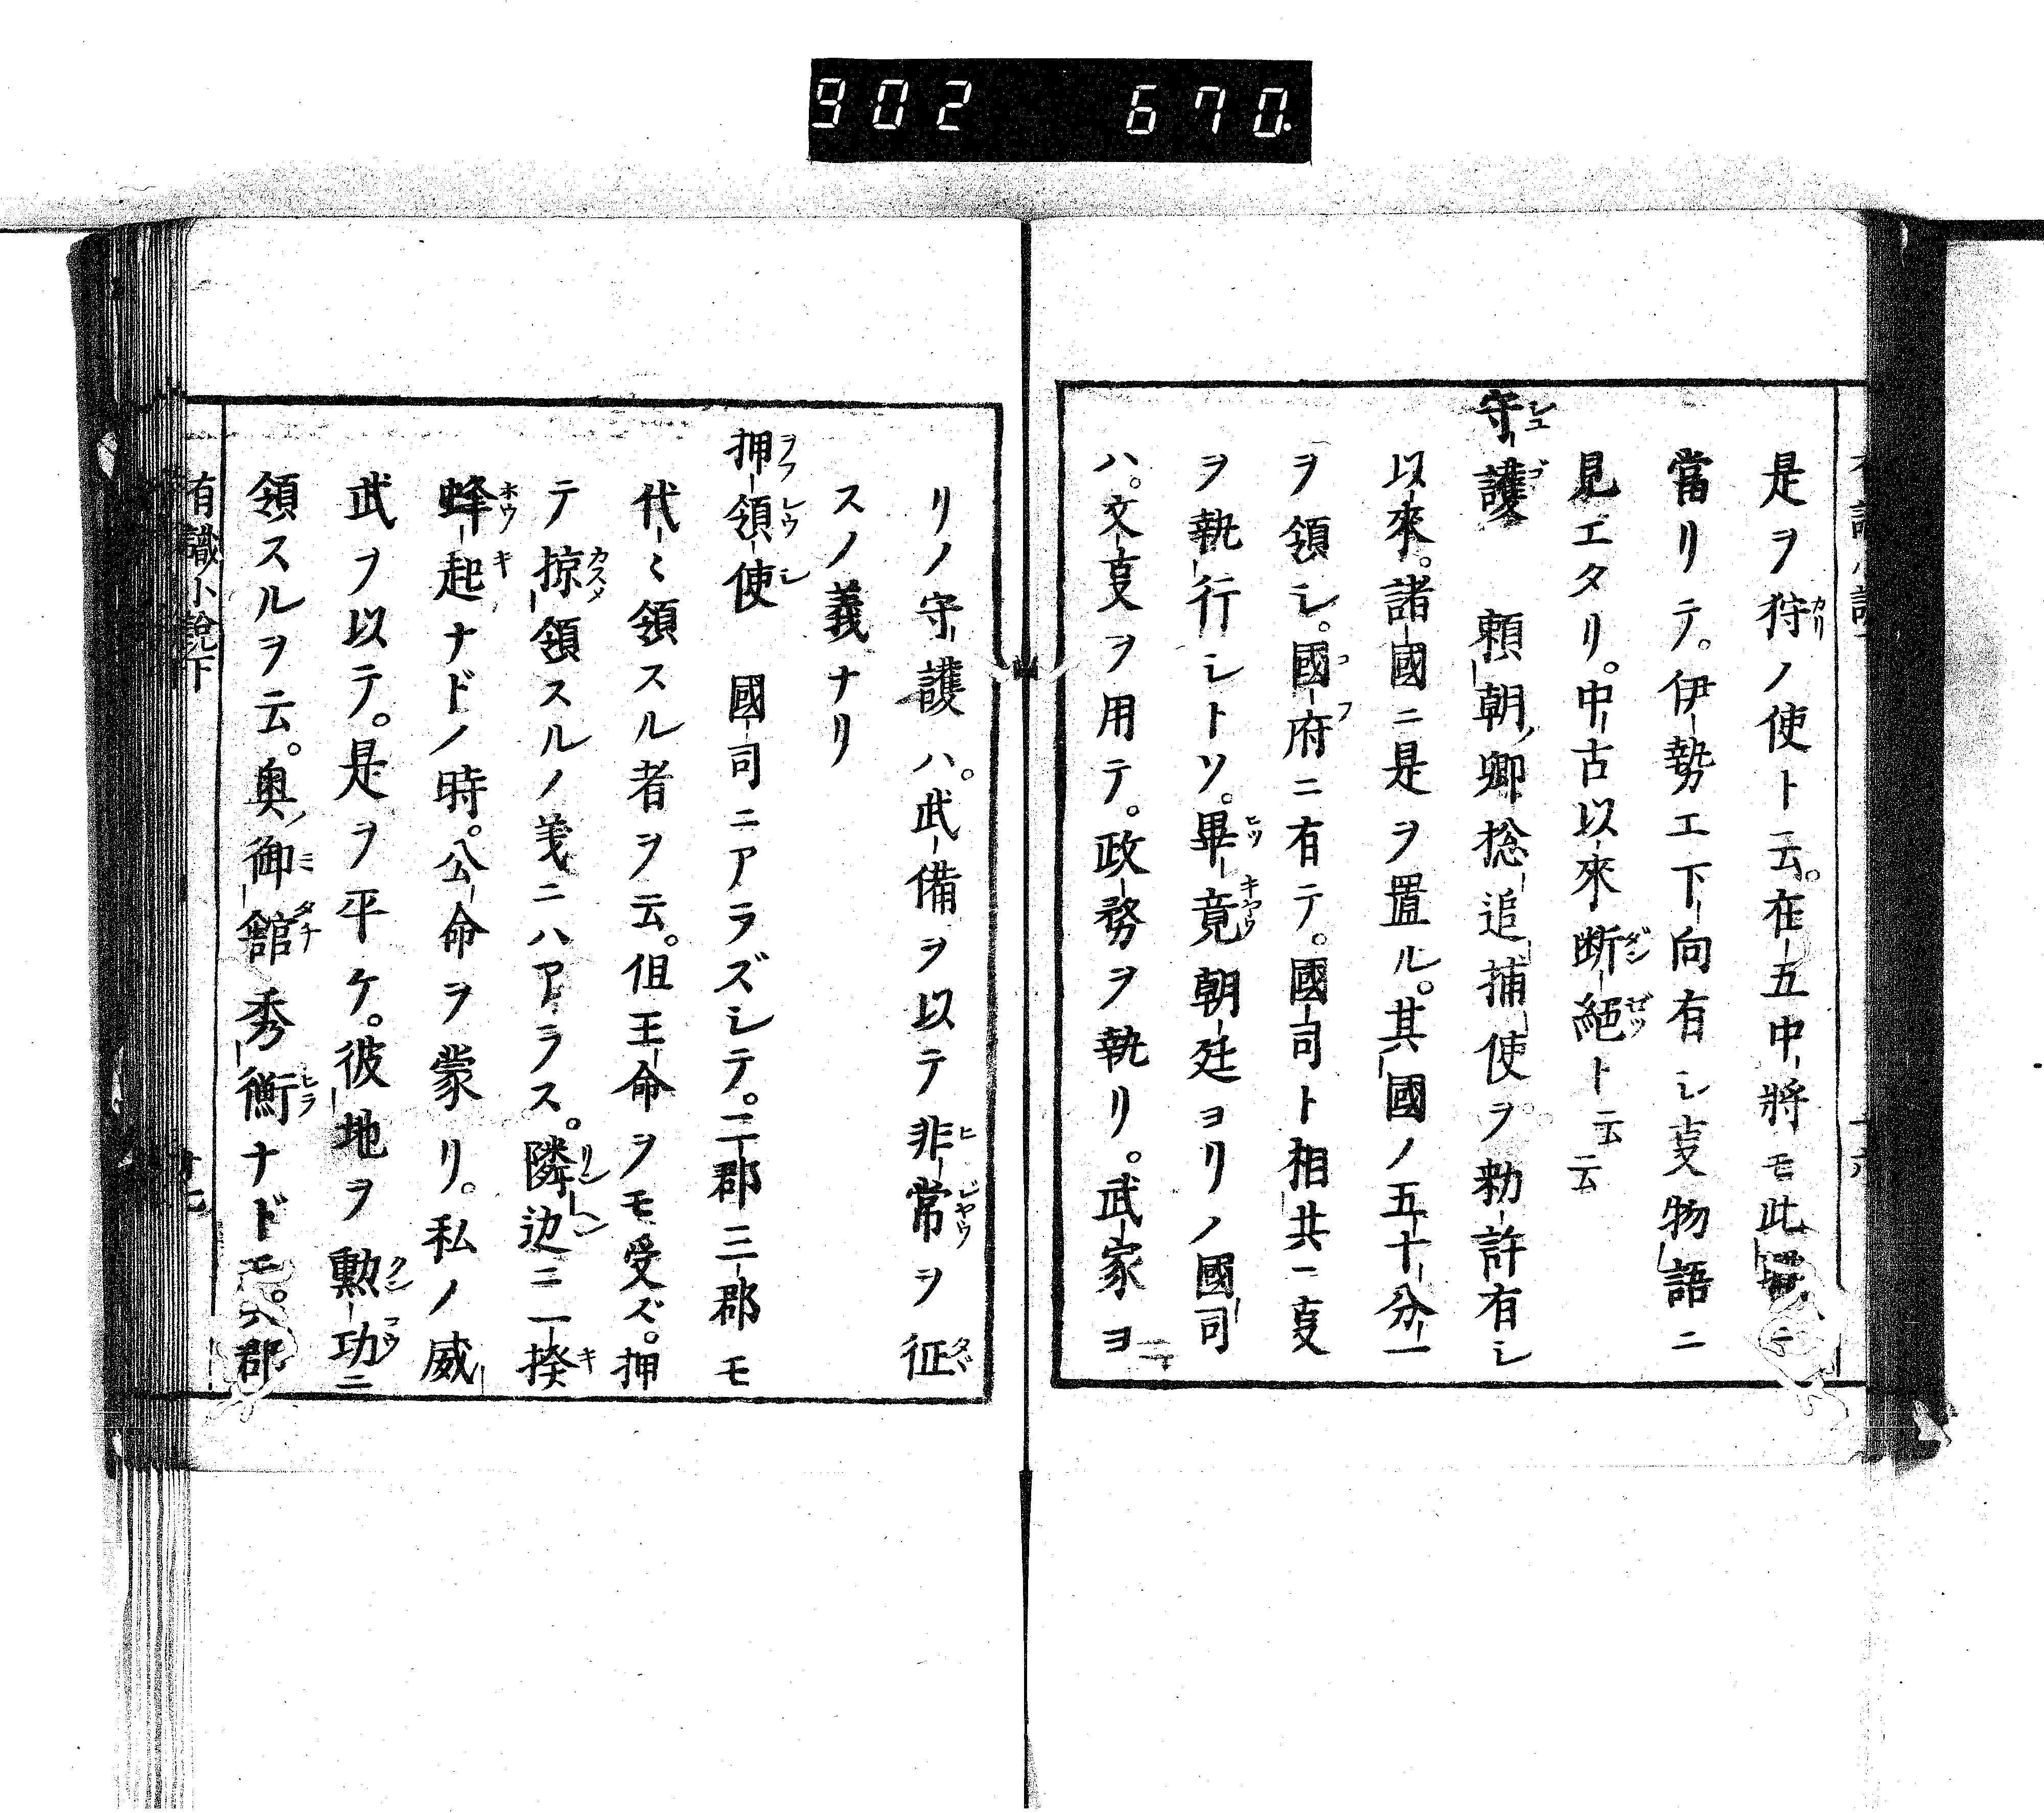 902 670.
是ヲ狩ノ使ト云。在五中將モ此ニ
當リテ。伊勢エ下向有シ夏物語ニ
見エタリ。中古以來断絕ト云云
守護 頼朝ノ卿捴追捕使ヲ勅許有シ
以來。諸國ニ是ヲ置ル。其國ノ五十分一
ヲ領シ。國府ニ有テ。國司ト相共ニ夏
ヲ執行シトソ。畢竟朝廷ヨリノ國司
ハ。文夏ヲ用テ。政務ヲ執リ。武家ヨ
リノ守護ハ。武備ヲ以テ非常ヲ征
スノ義ナリ
押領使 國司ニアラズシテ。二郡三郡モ
代〻領スル者ヲ云。但王命ヲモ受ズ。押
テ掠領スルノ義ニハアラス。隣边ニ一揆
蜂起ナドノ時。公命ヲ蒙リ。私ノ威
武ヲ以テ。是ヲ平ケ。彼地ヲ勲功ニ
領スルヲ云。奥ノ御舘秀衡ナドモ。六郡
有識小說下